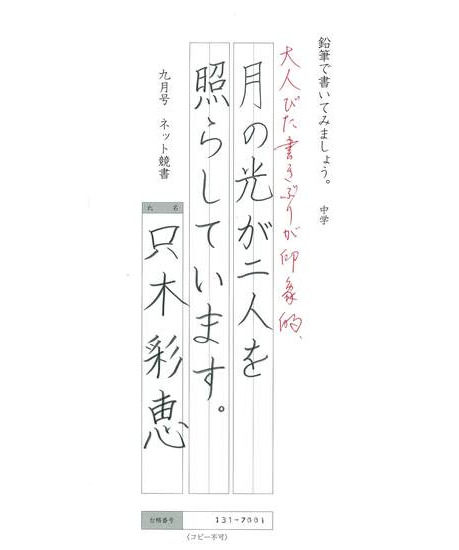 鉛筆で書いてみましょう。 中学
大人びた書きぶりが印象的、
月の光が二人を
照らしています。
九月号 ネット競書
氏 名
只木彩恵
台帳番号 131-7001
(コピー不可)